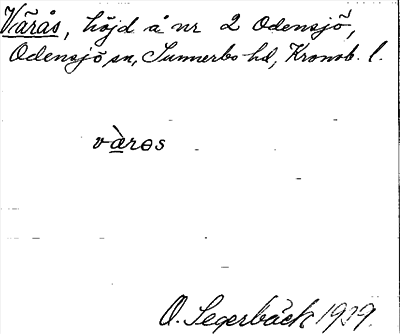 Vårås, höjd å nr 2 Odensjö,
Odensjö sn, Sunnerbo hd, Kronob. l.
vàrɵs
O. Segerbäck 1939.